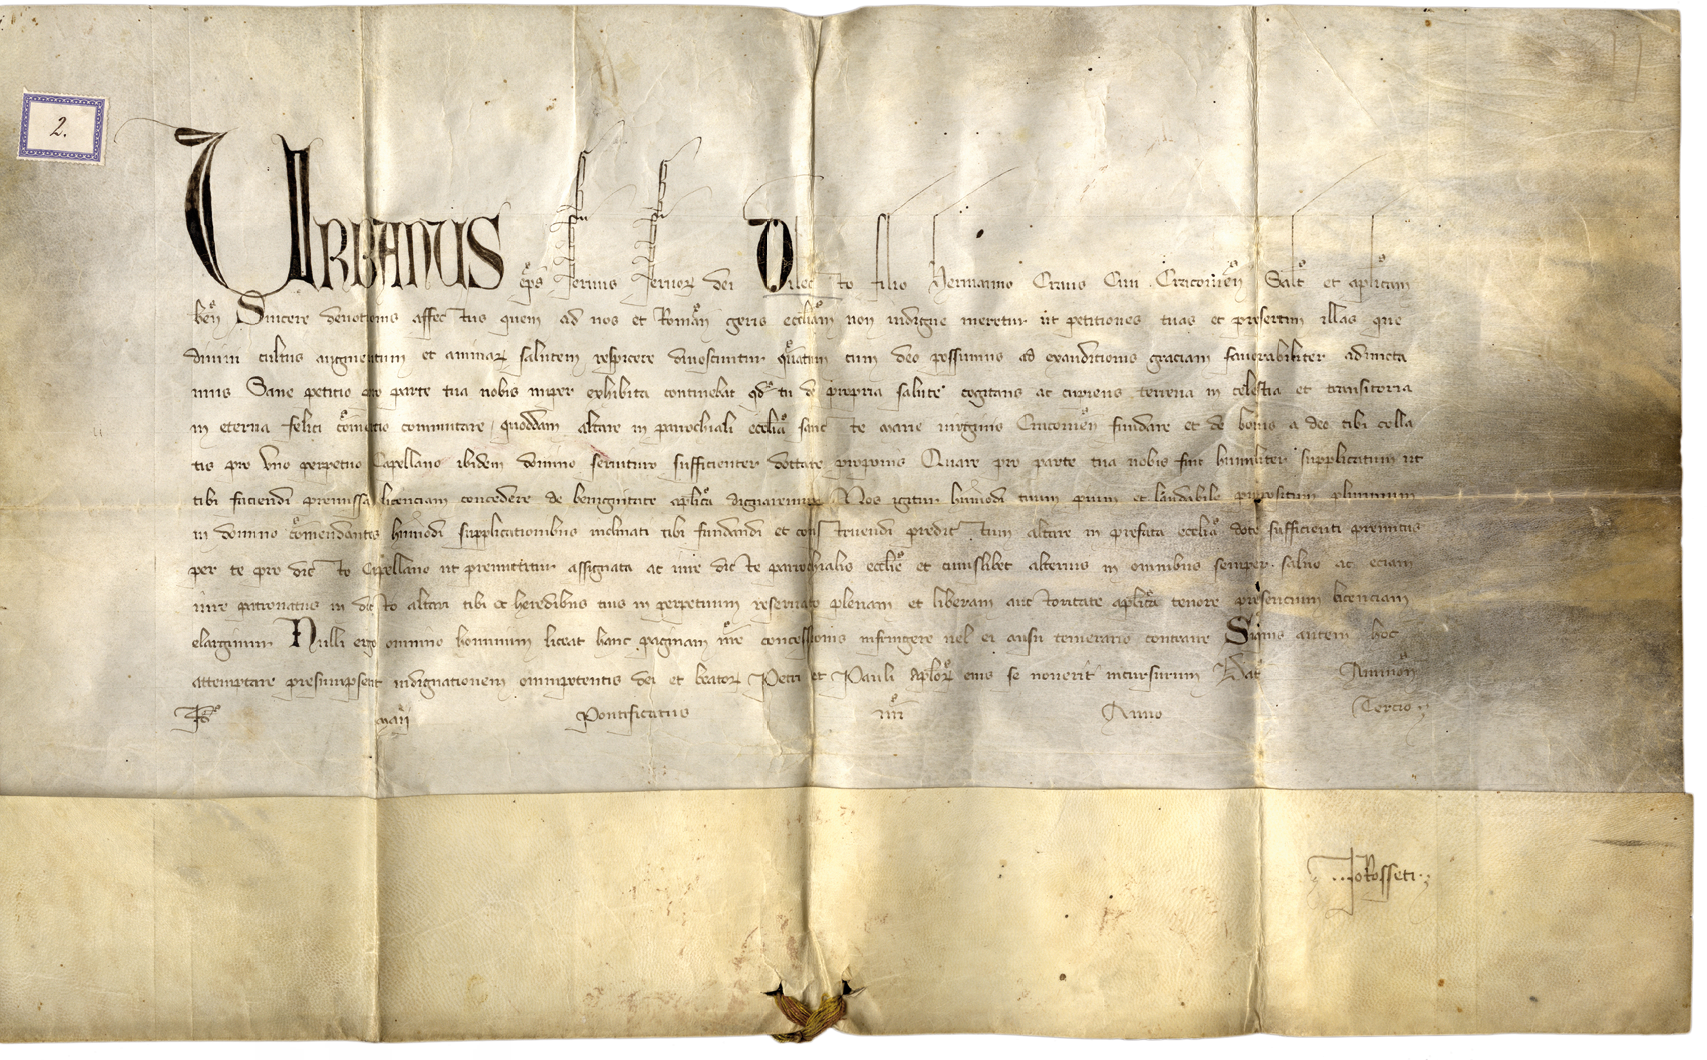 2.
URBANUS ep̄s seruus seruoꝝ dei Dilecto filio Hermanno Craus Ciui Cracouien̄ Salt̄ et aplicam
ben̄ Sincere deuotionis affectus quem ad nos et Roman̄ geris eccliam non indigne meretur ut petitiones tuas et presertim illas que
diuini cultus augmentum et animaꝝ salutem respicere dinoscuntur quātum cum deo possumus ad exauditionis graciam fauorabiliter admitta
mus Sane petitio pro parte tua nobis nuper exhibita continebat qd̄ tu de propria salute cogitans ac cupiens terrena in celestia et transitoria
in eterna felici cōmertio commutare quoddam altare in parrochiali ecclia sancte marie uirginis Cracouien̄ fundare et de bonis a deo tibi colla
tis pro vno perpetuo Capellano ibidem domino seruituro sufficienter dottare proponis Quare pro parte tua nobis fuit humiliter supplicatum ut
tibi faciendi premissa licenciam concedere de benignitate aplica dignaremur Nos igitur huiusmodi tuum pium et laudabile propositum plurimum
in domino cōmendantes huiusmodi supplicationibus inclinati tibi fundandi et construendi predictum altare in prefata ecclia dote sufficienti primitus
per te pro dicto Capellano ut premittitur assignata ac iure dicte parrochialis ecclie et cuiuslibet alterius in omnibus semper saluo ac eciam
iure patronatus in dicto altari tibi et heredibus tuis in perpetuum reseruato plenam et liberam auctoritate aplica tenore presencium licenciam
elargimur Nulli ergo omnino hominum liceat hanc paginam nr̄e concessionis infringere uel ei ausu temerario contraire Siquis autem hoc
attemptare presumpserit indignationem omnipotentis dei et beatoꝝ Petri et Pauli aploꝝ eius se nouerit incursurum Dat̄ Auinion̄
maii Pontificatus nr̄i Anno Tercio
Jo Rosseti